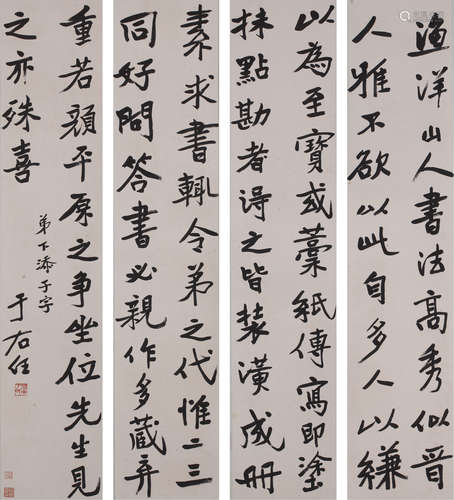 漁洋山人書法高秀似晋
人雅不欲以此自多人以縑
以為至寶或藁紙傳寫即塗
抹點勘者得之皆裝潢成冊
素求書輒令弟之代惟二三
同好問答書必親作多藏弆
重若顏平原之争坐位先生見
之亦殊喜
弟下添子字
于右任